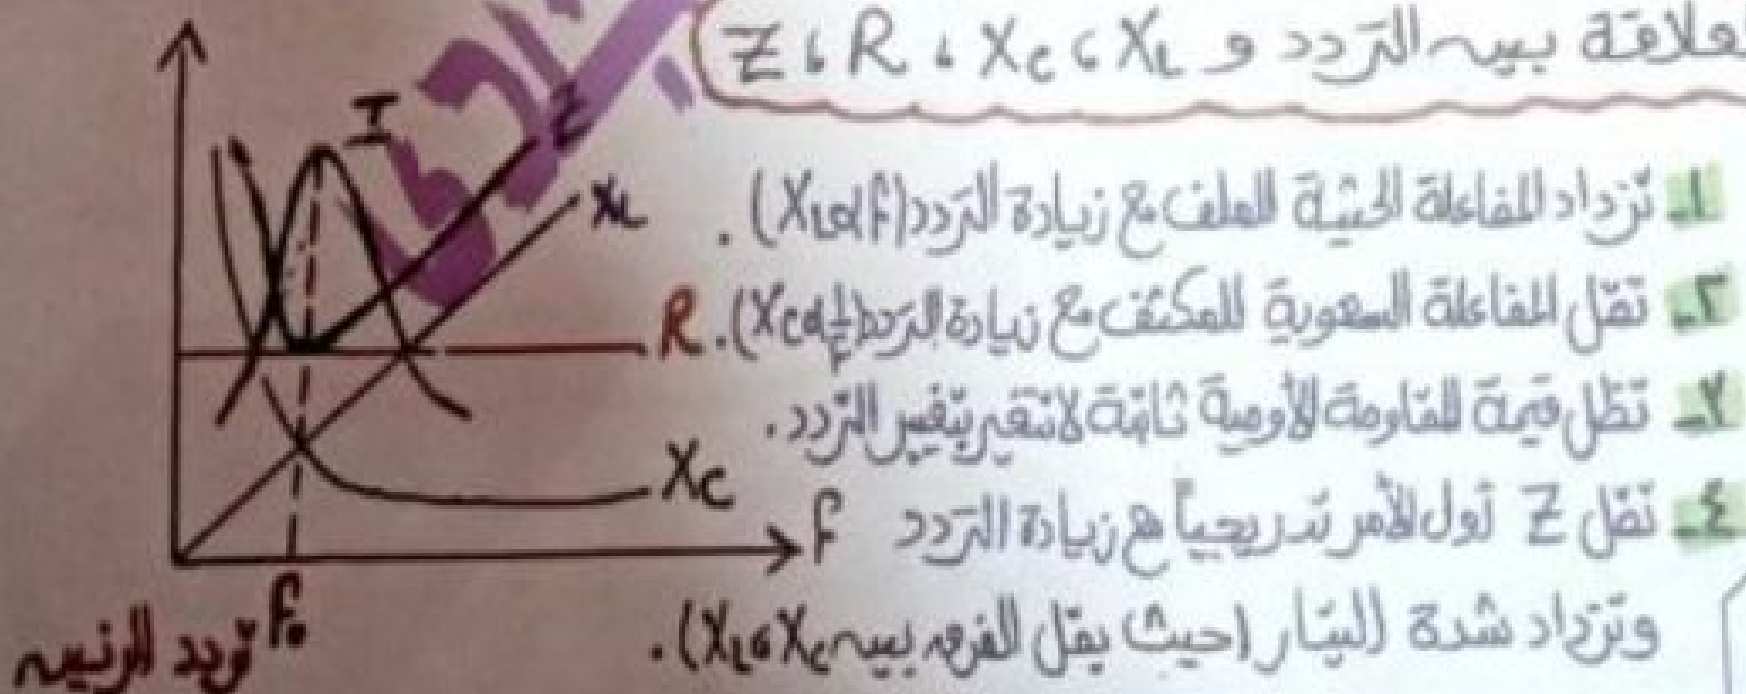 علاقة بين التردد و XL ، XC ، R ، Z
١- تزداد المفاعلة الحثية للملف مع زيادة التردد (XL α f).
٢- تقل المفاعلة السعوية للمكثف مع زيادة التردد (XC α 1/F).
٣- تظل قيمة المقاومة الأومية ثابتة لا تتغير بتغير التردد.
٤- تقل Z أول الأمر تدريجياً مع زيادة التردد
وتزداد شدة التيار (حيث يقل الفرق بين XC ، XL).
I
Z
XL
R
XC
f
f₀
تردد الرنين